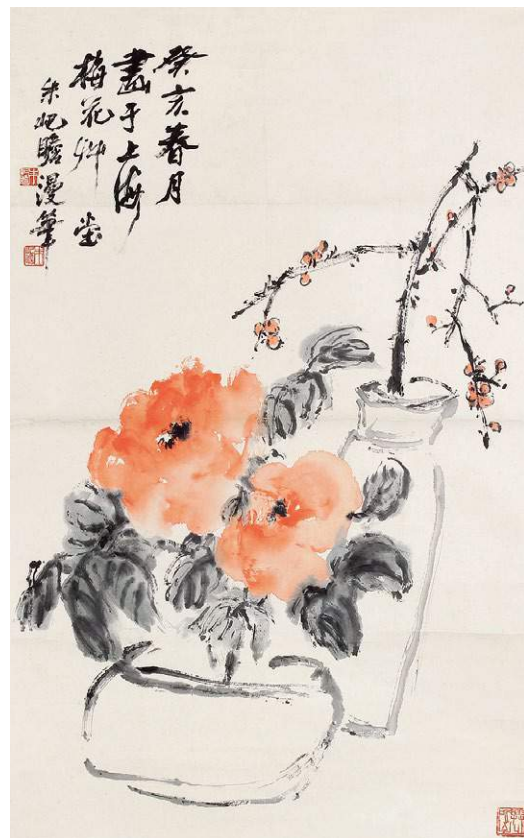 癸亥春月
畫于上海
梅花艸堂
朱屺瞻漫筆